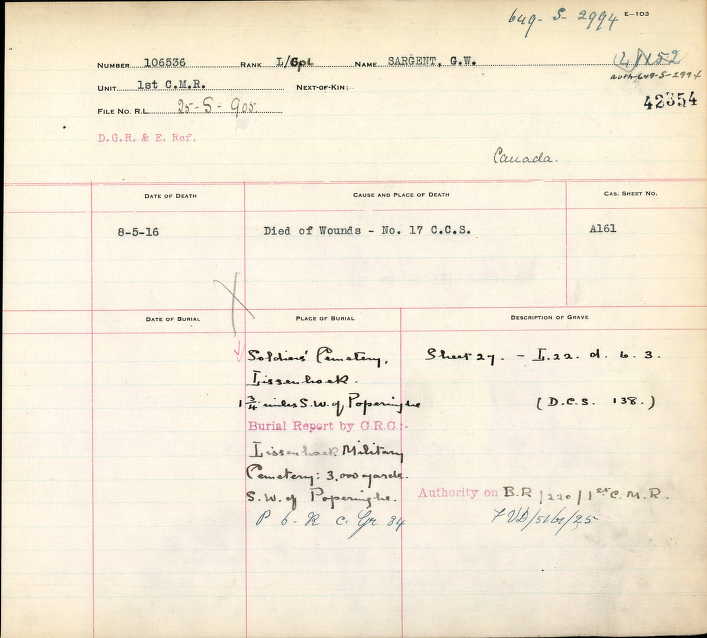 649-S-2994 E-103
NUMBER 106536 RANK L/Cpl NAME SARGENT, G.W.
auth 649-S-2994
UNIT 1st C.M.R. NEXT-OF-KIN:-
42354
FILE NO. R.L. 25-S-905.
D.G.R. & E. Ref.
Canada.
DATE OF DEATH CAUSE AND PLACE OF DEATH CAS. SHEET NO.
8-5-16 Died of Wounds - No. 17 C.C.S. A161
DATE OF BURIAL PLACE OF BURIAL DESCRIPTION OF GRAVE
Soldiers' Cemetery, Sheet 27. - L.22. d. 6. 3.
Lissenhoek.
1 3/4 miles S.W. of Poperinghe (D.C.S. 138.)
Burial Report by G.R.C:-
Lissenhoek Military
Cemetery: 3,000 yards.
S.W. of Poperinghe. Authority on B.R /220/1st C.M.R.
P 6. R C. Gr 34